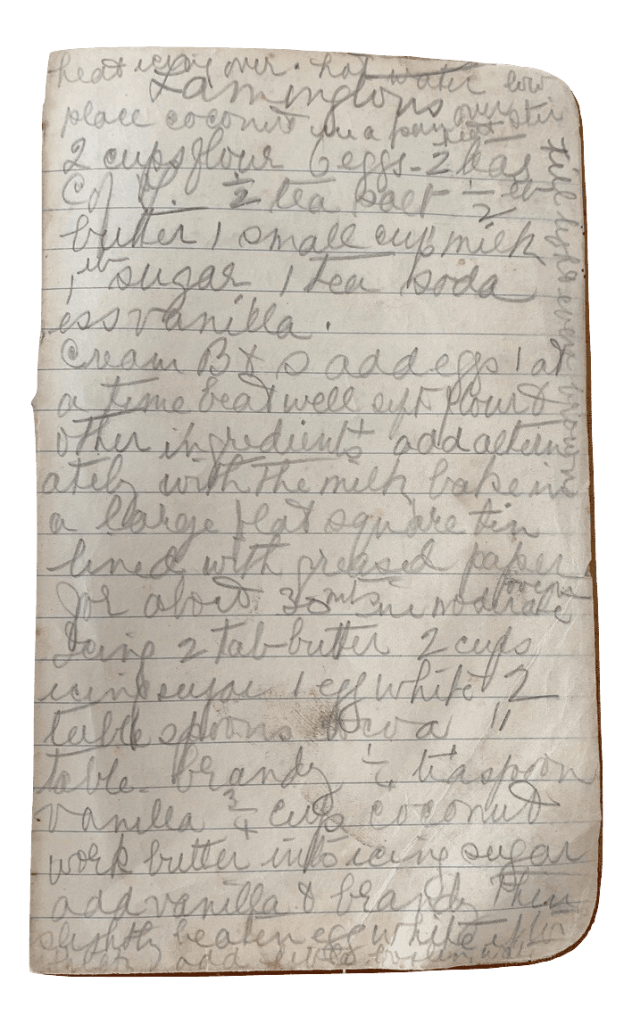 heat icing over hot water low
Lamingtons
place coconut in a pan over
2 cups flour 6 eggs - 2 teas
C of T. ½ tea salt ½ lb
butter 1 small cup milk
1 lb sugar 1 tea soda
ess vanilla.
Cream B & S add eggs 1 at
a time beat well sift flour &
other ingredients add altern
ately with the milk bake in
a large flat square tin
lined with greased paper
for about 30 mts in moderate oven
Icing 2 tab butter 2 cups
icing sugar 1 egg white 2
table spoons cocoa 11
table - brandy ¼ teaspoon
vanilla ¾ cup coconut
work butter into icing sugar
add vanilla & brandy then
slightly beaten egg white if
add little
till light even brown